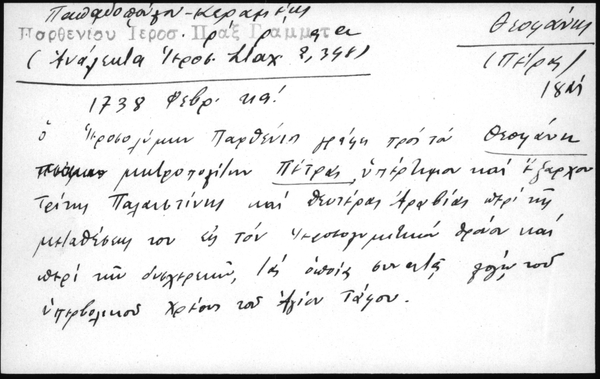 Παπαδοπούλου-Κεραμέως
Παρθενίου Ιεροσ. Πράξ Γράμματα
(Ἀνάλεκτα Ἱεροσ. Σταχ 2, 398)
Θεοφάνης
(Πέτρας)
18 αἰ
1738 Φεβρ. κα΄
ὁ Ἱεροσολύμων Παρθένιος γράφει πρός τόν Θεοφάνη
μητροπολίτην Πέτρας, ὑπέρτιμον καί ἔξαρχον
Τρίτης Παλαιστίνης καί Δευτέρας Ἀραβίας περί τῆς
μεταθέσεως του εἰς τόν Ἱεροσολυμιτικόν θρόνον καί
περί τῶν δυσχερειῶν, τάς ὁποίας συναντᾶ τοῦ
ὑπερβολικοῦ χρέους τοῦ Ἁγίου Τάφου.